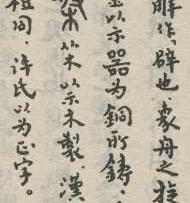 解作。辟也。象舟之旋
以示器為銅所鑄。
从米以示木製。漢
祖同。許氏以為正字。